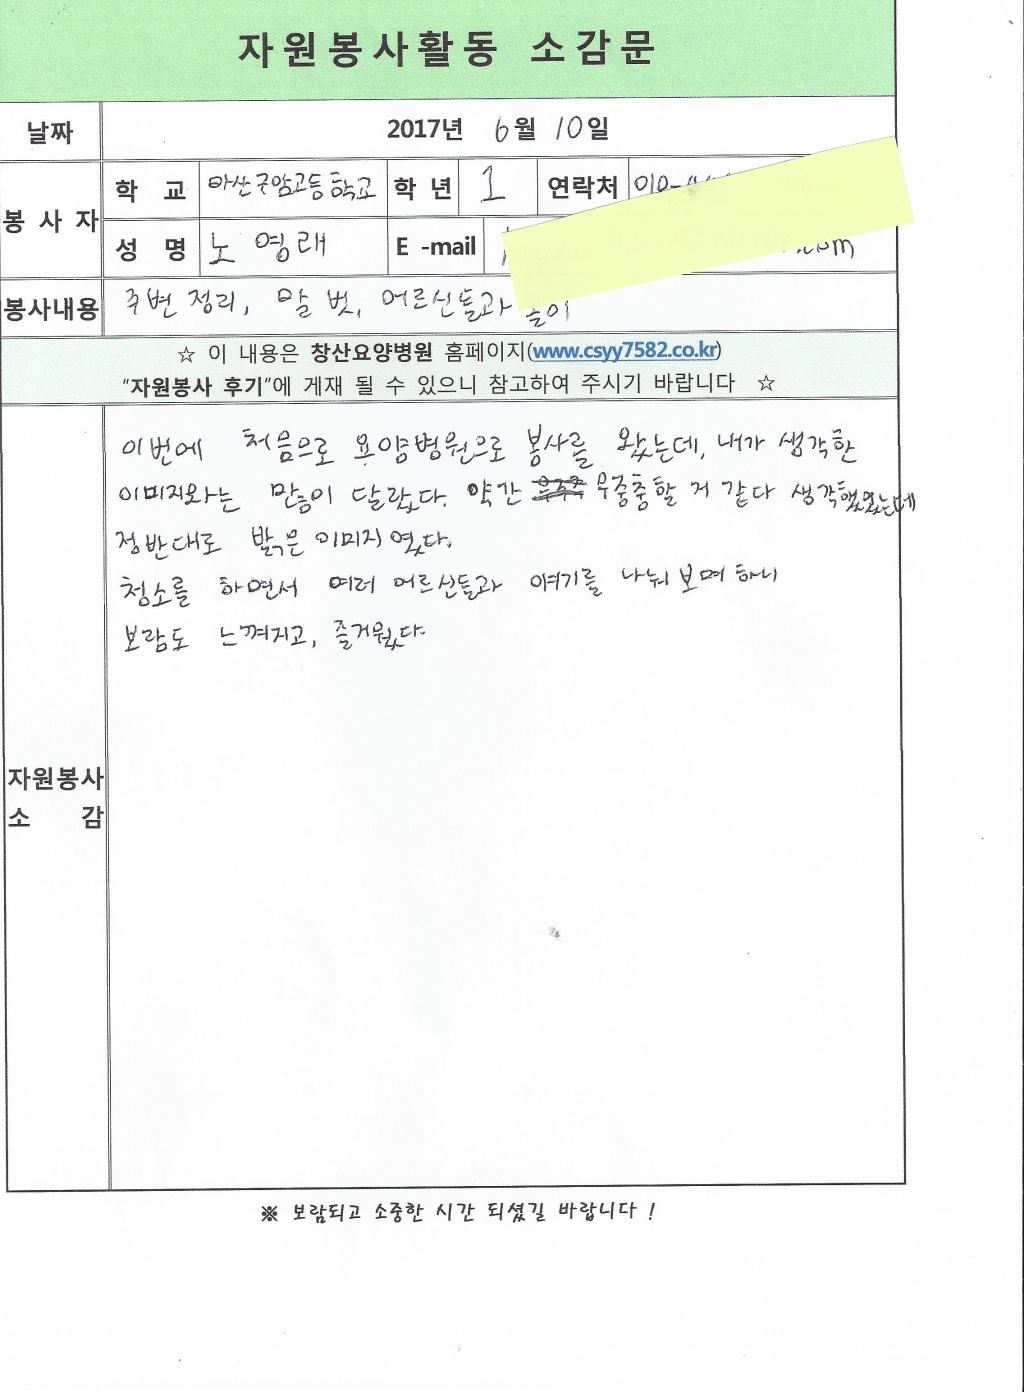 자원봉사활동 소감문
날짜 2017년 6월 10일
봉사자 학 교 마산구암고등학교 학 년 1 연락처 010-
성 명 노영래 E -mail .com
봉사내용 주변 정리, 말 벗, 어르신들과 놀이
☆ 이 내용은 창산요양병원 홈페이지(www.csyy7582.co.kr)
"자원봉사 후기"에 게재 될 수 있으니 참고하여 주시기 바랍니다 ☆
이번에 처음으로 요양병원으로 봉사를 왔는데, 내가 생각한
이미지와는 많이 달랐다. 약간 우중충할 거 같다 생각했었는데
정반대로 밝은 이미지였다.
청소를 하면서 여러 어르신들과 얘기를 나눠 보며 하니
보람도 느껴지고, 즐거웠다.
자원봉사
소 감
※ 보람되고 소중한 시간 되셨길 바랍니다 !